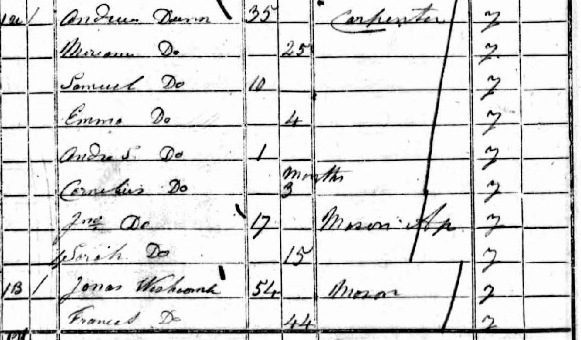 1 Andrew 35 Carpenter y
Do 25 y
Samuel Do 10 y
Emma Do 4 y
Do 1 y
Cornelius Do 3 Months y
Jno Do 17 Mason Ap y
Sarah Do 15 y
113 1 Jonas 54 Mason y
Frances Do 44 y